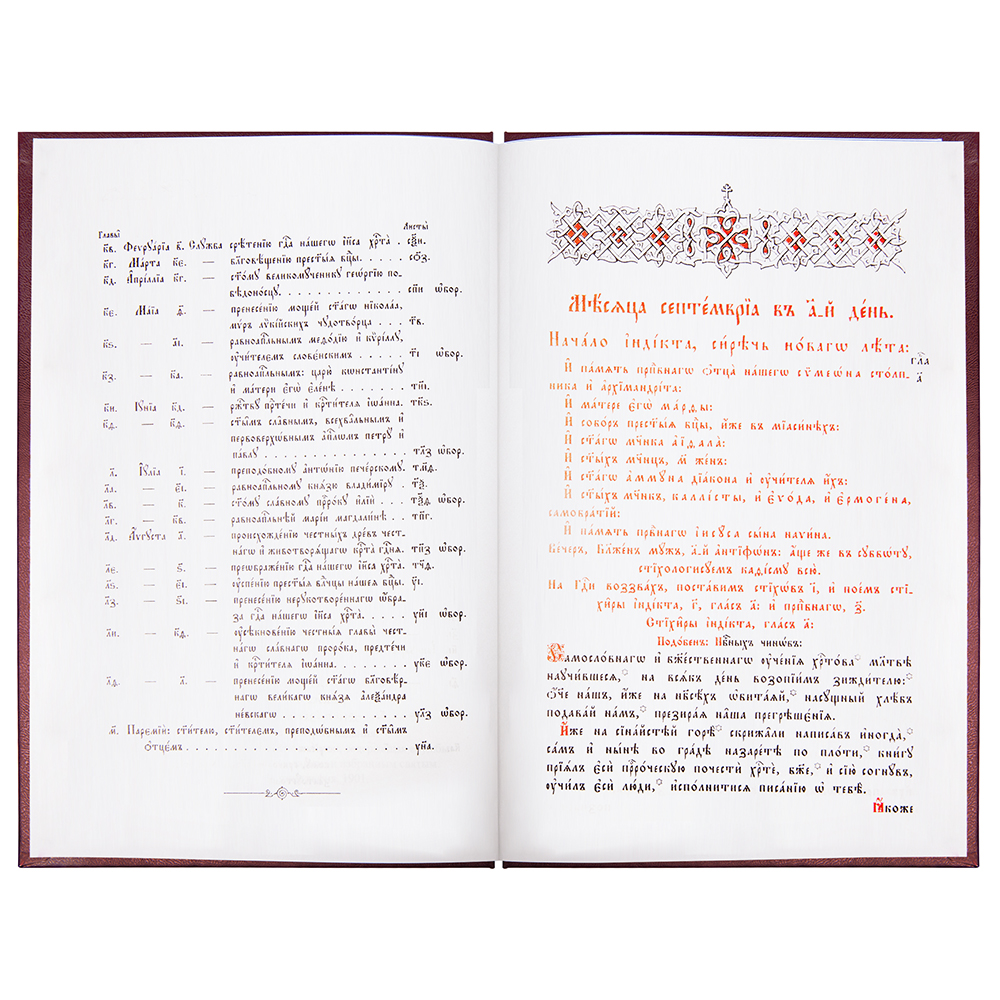 Главы̀ Листы̀
к҃в. Феѵрꙋа́рїа в҃. Слꙋ́жба срѣ́тенїю гдⷭ҇а на́шегѡ і҆и҃са хрⷭ҇та̀ .
к҃г. Ма́рта к҃є. — бл҃говѣ́щенїю прест҃ы́ѧ бцⷣы. . . . . . со҃з.
к҃д. А҆прі́ллїа к҃г. — ст҃о́мꙋ великомꙋ́ченикꙋ геѡ́ргїю по-
бѣдоно́сцꙋ. . . . . . . . . . . . . . сп҃и ѡ҆бор.
к҃є. Ма́їа ѳ҃. — пренесе́нїю моще́й ст҃а́гѡ нїко́лаа,
мѵ́ръ лѷкі́йскихъ чꙋдотво́рца . . . т҃в.
к҃ѕ. — а҃і. — равноап҇льнымъ меѳо́дїю и҆ кѷрі́ллꙋ,
ᲂу҆чи́телемъ слове́нскимъ . . . . . . т҃і ѡ҆бор.
к҃з. — к҃а. — равноап҇льнымъ: царю̀ кѡнстанті́нꙋ
и҆ ма́тери є҆гѡ̀ є҆ле́нѣ . . . . . . . . тп҃і.
к҃и. І҆ꙋ́нїа к҃д. — ржⷭ҇твꙋ̀ прⷣте́чи и҆ крⷭ҇ти́телѧ і҆ѡа́нна. . тк҃ѕ.
к҃ѳ. — к҃ѳ. — ст҃ы́мъ сла́внымъ, всехва́льнымъ и҆
первоверхѡ́внымъ а҆пⷭ҇лѡмъ петрꙋ̀ и҆
па́влꙋ . . . . . . . . . . . . . . . тл҃з ѡ҆бор.
л҃. І҆ꙋ́лїа і҃. — преподо́бномꙋ а҆нтѡ́нїю пече́рскомꙋ. . тм҃ѳ.
л҃а. — є҃і. — равноап҇льномꙋ кнѧ́зю влади́мїрꙋ . . тѯ҃.
л҃в. — к҃. — ст҃о́мꙋ сла́вномꙋ прⷪ҇ро́кꙋ и҆лїѝ . . . тѯ҃ѳ ѡ҆бор.
л҃г. — к҃в. — равноап҇льнѣй марі́и магдали́нѣ . . тп҃г.
л҃д. А҆́ѵгꙋста а҃. — происхожде́нїю честны́хъ дре́въ чест-
на́гѡ и҆ животворѧ́щагѡ крⷭ҇та̀ гдⷭ҇нѧ. . тп҃з ѡ҆бор.
л҃є. — ѕ҃. — преѡбраже́нїю гдⷭ҇а на́шегѡ і҆и҃са хрⷭ҇та̀. тч҃ѳ.
л҃ѕ. — є҃і. — ᲂу҆спе́нїю прест҃ы́ѧ влⷣчцы на́шеѧ бцⷣы. ꙋ҃і.
л҃з. — ѕ҃і. — пренесе́нїю нерꙋкотворе́ннагѡ ѡ҆́бра-
за гдⷭ҇а на́шегѡ і҆и҃са хрⷭ҇та̀. . . . . . ꙋн҃і ѡ҆бор.
л҃и. — к҃ѳ. — ᲂу҆сѣкнове́нїю честны́ѧ главы̀ чест-
на́гѡ сла́внагѡ проро́ка, предте́чи
и҆ крⷭ҇ти́телѧ і҆ѡа́нна. . . . . . . . . ꙋк҃є ѡ҆бор.
л҃ѳ. — л҃. — пренесе́нїю моще́й ст҃а́гѡ бл҃говѣ́р-
нагѡ вели́кагѡ кнѧ́зѧ а҆леѯа́ндра
не́вскагѡ . . . . . . . . . . . . . . ꙋл҃з ѡ҆бор.
м҃. Паремі́й: ст҃и́телю, ст҃и́телемъ, преподѡ́бнымъ и҆ ст҃ы̑мъ
ѻ҆тцє́мъ . . . . . . . . . . . . . . . . . . . . . . . . ꙋн҃а.
Мѣ́сѧца септе́мврїа въ а҃-й де́нь.
Нача́ло і҆ндї́кта, си́рѣчь но́вагѡ лѣ́та:
гл҃а а҃
И҆ па́мѧть прпⷣбнагѡ ѻ҆тца̀ на́шегѡ сѷмеѡ́на столп-
ника и҆ а҆рхїмандрі́та:
И҆ ма́тере є҆гѡ̀ ма́рѳы:
И҆ собо́ръ прест҃ы́ѧ бцⷣы, ꙗ҆́же въ мїаси́нѣхъ:
И҆ ст҃а́гѡ мч҃нка а҆їѳа́ла:
И҆ ст҃ы́хъ мч҃нцъ, м҃ же́нъ:
И҆ ст҃а́гѡ а҆ммꙋ́на дїа́кона и҆ ᲂу҆чи́телѧ и҆́хъ:
И҆ ст҃ы́хъ мч҃нкъ, каллі́сты, и҆ є҆ѵо́да, и҆ є҆рмоге́на,
самобра́тїй:
И҆ па́мѧть прв҃нагѡ і҆исꙋ́са сы́на наѵи́на.
Ве́черъ, Бл҃же́нъ мꙋ́жъ, а҃-й а҆нтїфѡ́нъ: а҆́ще же въ сꙋббѡ́тꙋ,
стїхоло́гисꙋемъ каѳі́смꙋ всю̀.
На Гдⷭ҇и воззва́хъ, поста́вимъ стїхѡ́въ і҃, и҆ пое́мъ сті-
хи̑ры і҆ндї́кта, г҃, гла́съ а҃: и҆ прпⷣбнагѡ, з҃.
Стїхи̑ры і҆ндї́кта, гла́съ а҃:
Подо́бенъ: Нбⷭ҇ныхъ чинѡ́въ:
Самосло́внагѡ и҆ бж҃е́ственнагѡ ᲂу҆че́нїѧ хрⷭ҇то́ва* мл҃твѣ
наꙋчи́вшесѧ,* на всѧ́къ де́нь возопїи́мъ зижди́телю:*
Ѻ҆́ч҃е на́шъ, и҆́же на нб҃сѣ́хъ ѡ҆бита́ѧй,* насꙋ́щный хлѣ́бъ
подава́й на́мъ,* презира́ѧ на̑ша прегрѣшє́нїѧ.
И҆́же на сїна́йстѣй горѣ̀* скрижа̑ли написа́въ и҆ногда̀,*
са́мъ и҆ ны́нѣ во гра́дѣ назаре́тѣ по пло́ти,* кни́гꙋ
прїѧ́лъ є҆сѝ прⷪ҇ро́ческꙋю почестѝ хрⷭ҇тѐ, бж҃е,* и҆ сїю̀ согнꙋ́въ,
ᲂу҆чи́лъ є҆сѝ лю́ди,* и҆спо́лнитисѧ писа́нїю ѡ҆ тебѣ̀.
Ꙗ҆́коже